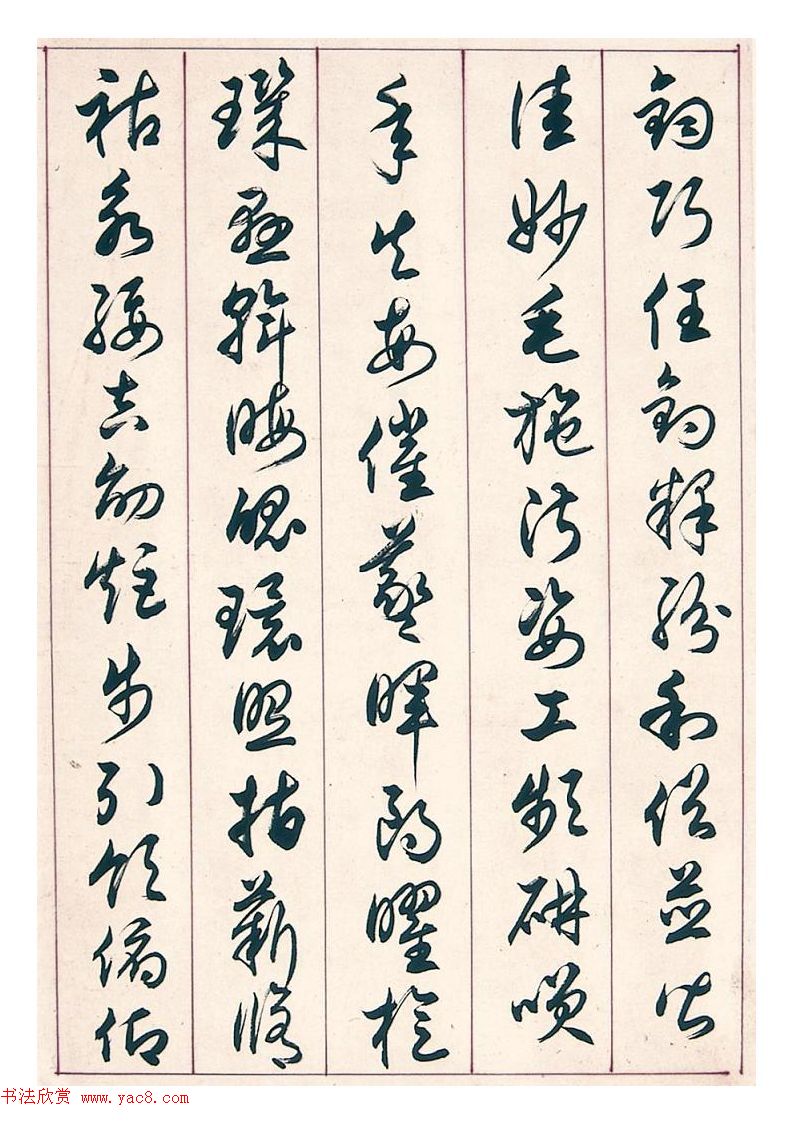 鈞巧任釣釋紛利俗並皆
佳妙毛施淑姿工顰妍笑
年矢每催羲暉朗曜璇
璣懸斡晦魄環照指薪修
祜永綏吉劭矩步引領俯仰
书法欣赏 www.yac8.com